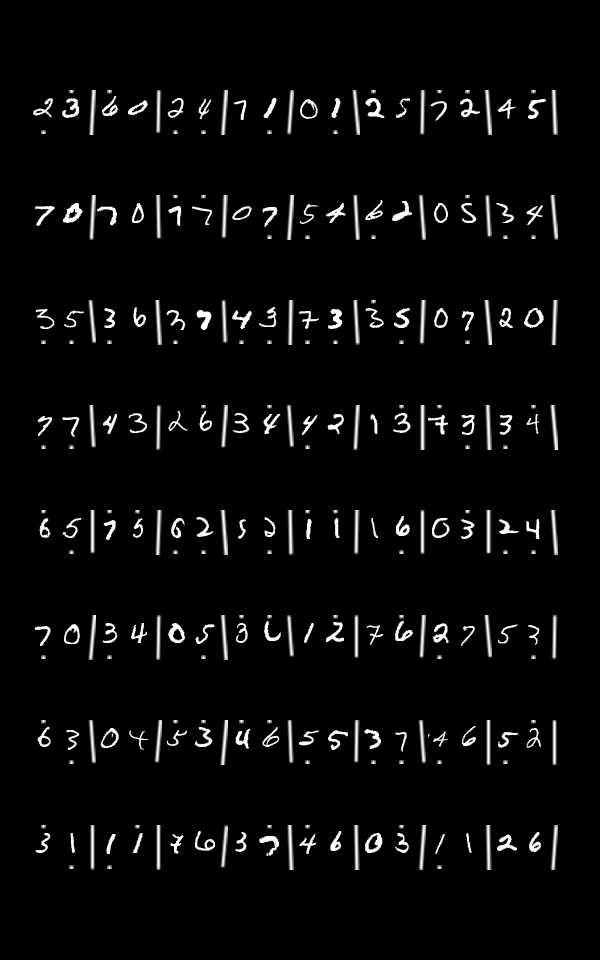 2 3 | 6 0 | 2 4 | 7 1 | 0 1 | 2 5 | 7 2 | 4 5 |
7 0 | 7 0 | 7 7 | 0 7 | 5 4 | 6 2 | 0 5 | 3 4 |
3 5 | 3 6 | 3 7 | 4 3 | 7 3 | 3 5 | 0 7 | 2 0 |
7 7 | 4 3 | 2 6 | 3 4 | 4 2 | 1 3 | 7 3 | 3 4 |
6 5 | 7 5 | 6 2 | 5 2 | 1 1 | 1 6 | 0 3 | 2 4 |
7 0 | 3 4 | 0 5 | 3 6 | 1 2 | 7 6 | 2 7 | 5 3 |
6 3 | 0 4 | 5 3 | 4 6 | 5 5 | 3 7 | 4 6 | 5 2 |
3 1 | 1 1 | 7 6 | 3 7 | 4 6 | 0 3 | 1 1 | 2 6 |